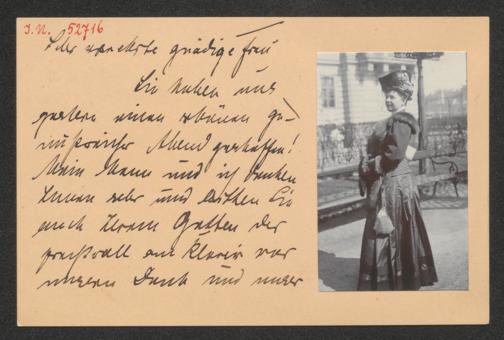 I. N. 52716
Sehr verehrte gnädige Frau
Sie haben uns
gestern einen schönen ge-
nußreichen Abend geschaffen!
Mein Mann und ich danken
Ihnen sehr und bitten Sie
auch Ihrem Gatten der
am Klavier war
unseren Dank und unser